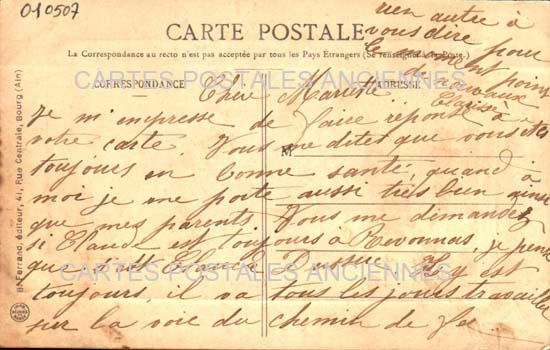 010507
CARTE POSTALE
La Correspondance au recto n'est pas acceptée par tous les Pays Étrangers (Se renseigner à la Poste.)
CORRESPONDANCE
ADRESSE
M
B. Ferrand, éditeur, 41, Rue Centrale, Bourg (Ain)
CARTES POSTALES ANCIENNES
CARTES POSTALES ANCIENNES
Chère Mariette
Je m'empresse de faire réponse à
votre carte. Vous me dites que vous êtes
toujours en bonne santé, quand à
moi je me porte aussi très bien ainsi
que mes parents. Vous me demandez
si Claude est toujours à Revonnas, je pense
que c'est Claude y est
toujours, il va tous les jours travailler
sur la voie du chemin de fer
rien autre à
vous dire
pour
le moment point
de nouveaux
Clarisse